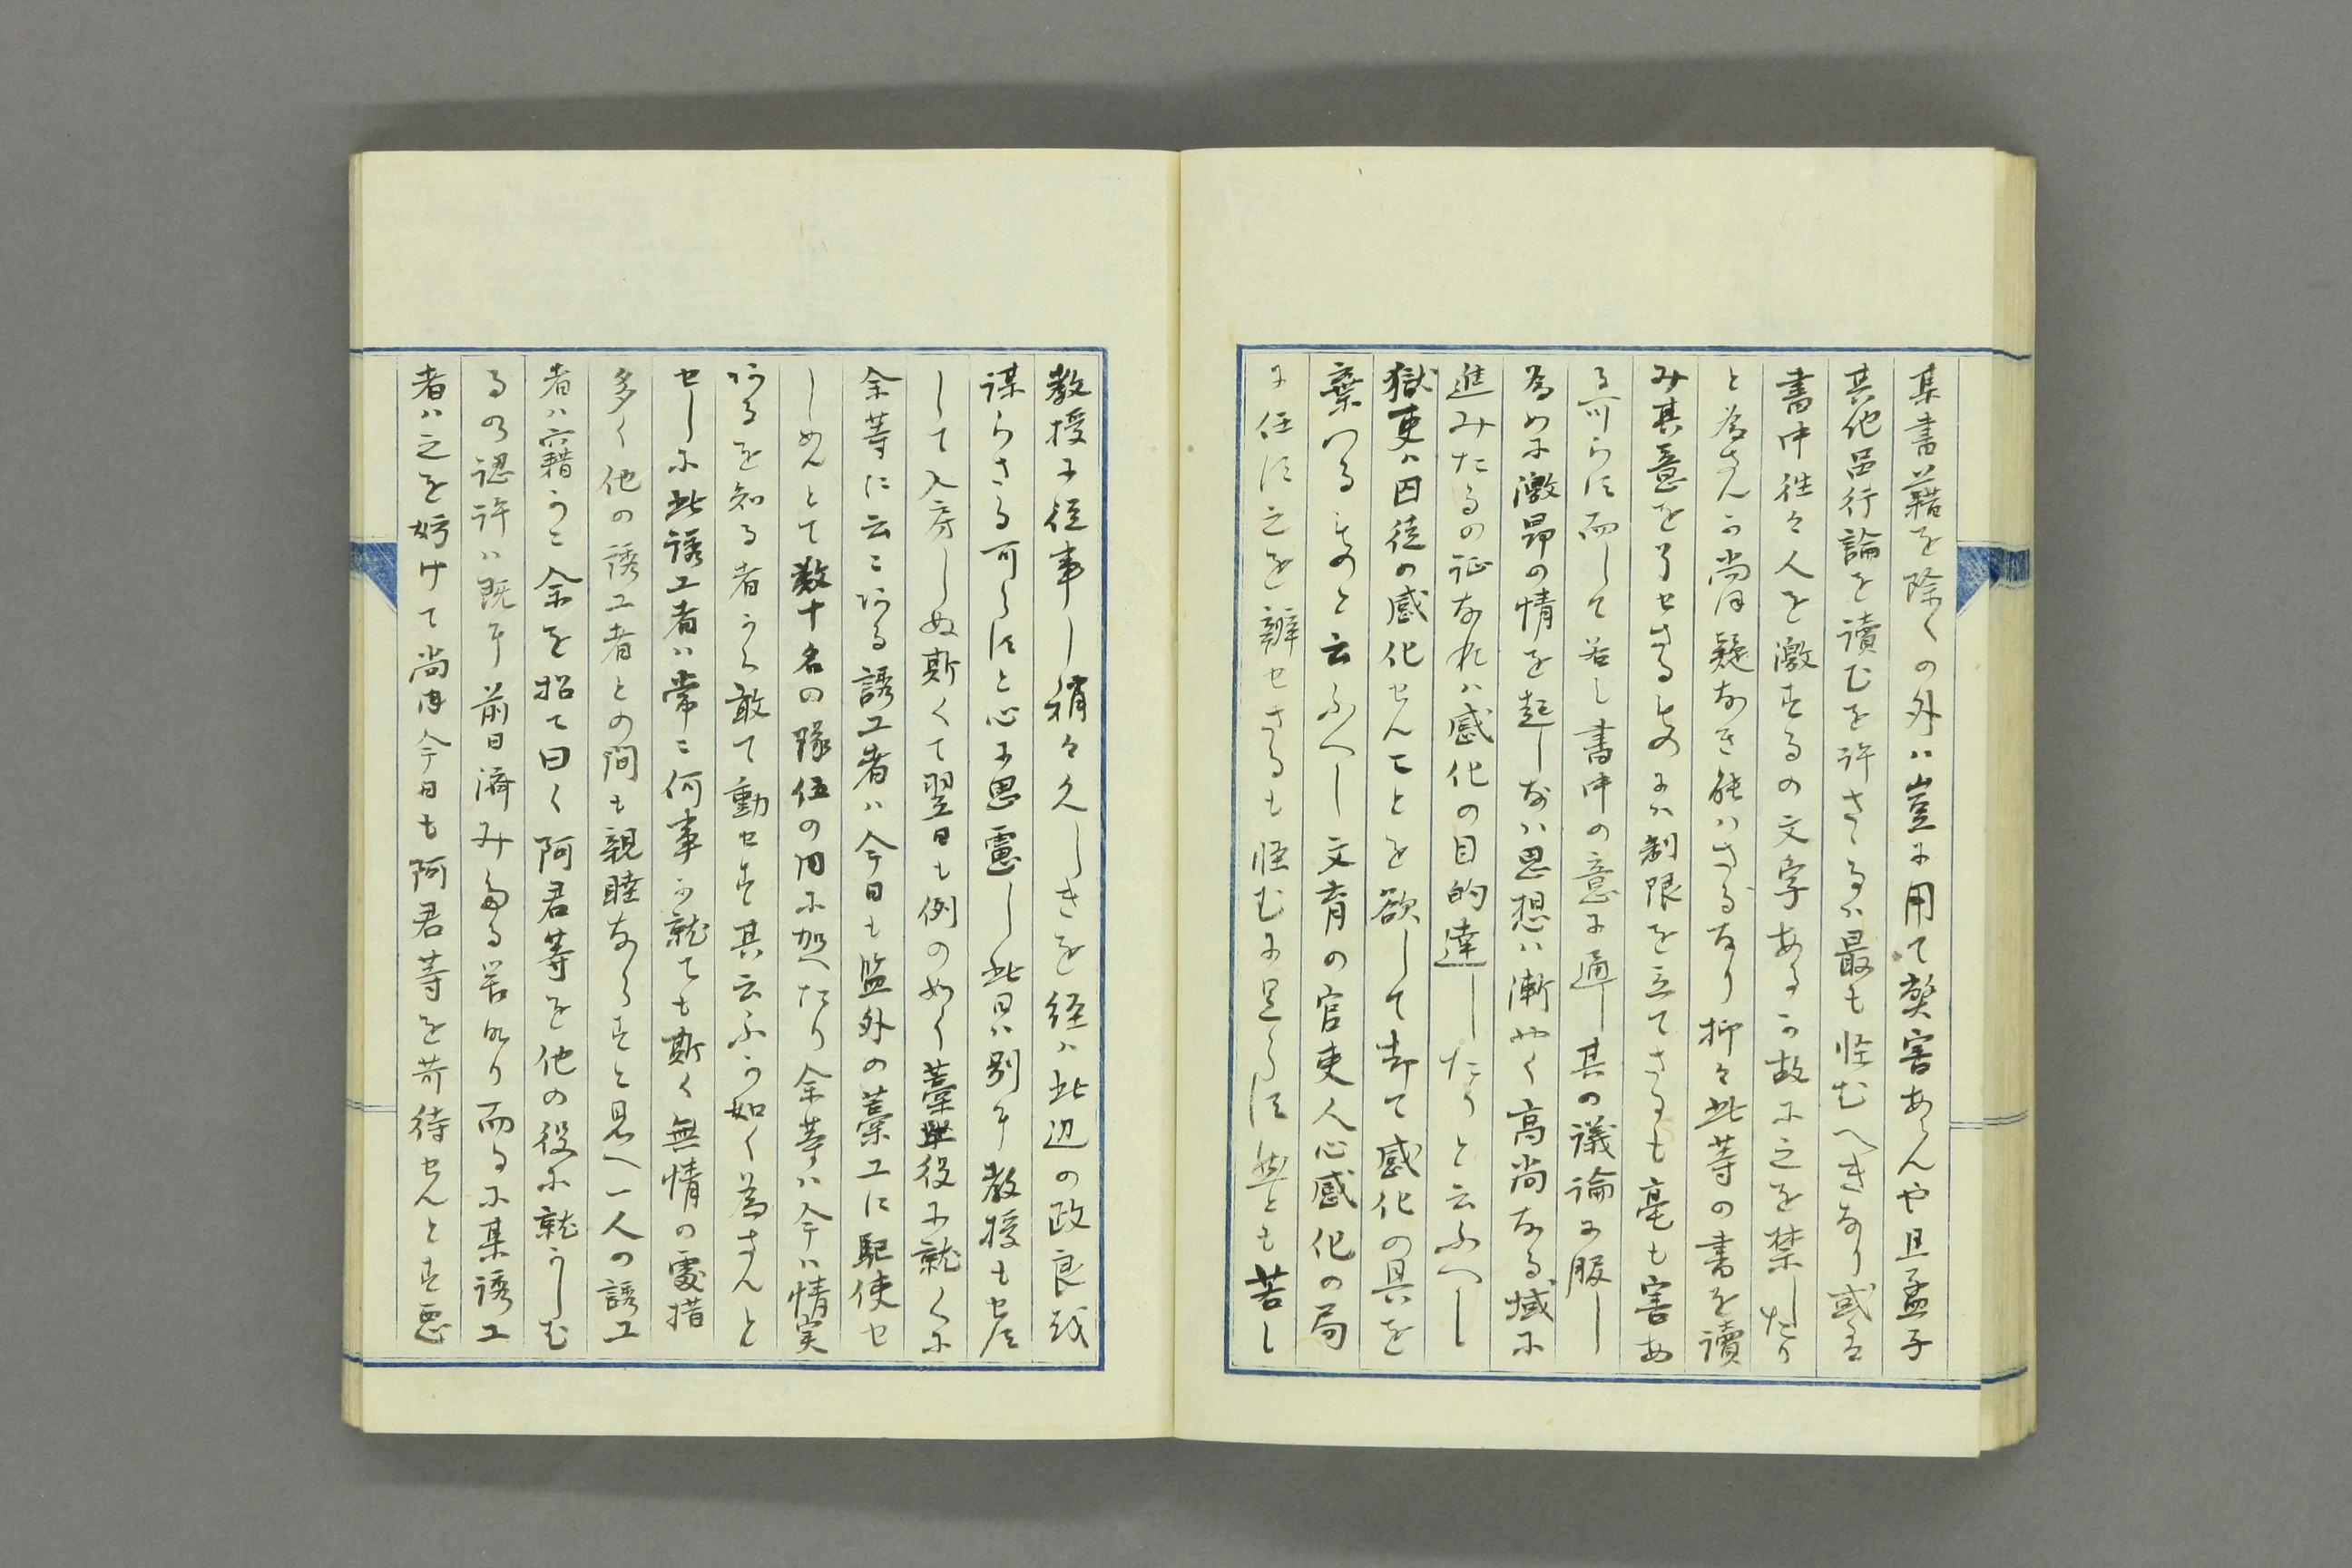 某書籍を除くの外ハ豈に用て弊害あらんや且孟子
其他呂行論を讀むを許さゝるハ最も怪むへきあり或ハ
書中徃々人を激するの文字あるか故に之を禁したり
と為さんか尚ほ疑あき能ハさるなり抑々此等の書を讀
み其意を了せさるものにハ制限を立てさるも毫も害あ
る可らす而して若し書中の意に通し其の議論に服し
為めに激昂の情を起しあハ思想ハ漸やく高尚なる域に
進みたるの証なれハ感化の目的達したりと云ふへし
獄吏ハ囚徒の感化せんことを欲して却て感化の具を
棄つるものと云ふへし文育の官吏人心感化の局
に任す之を辦せさるも怪むに足らす然とも若し
教授に従事し稍々久しきを経ハ此辺の改良をも
謀らさる可らすと心に思慮し此日ハ別に教授もせす
して入房しぬ斯くて翌日も例の如く藁工役に就くに
余等に云こゝある誘工者ハ今日も監外の藁工に駆使せ
しめんとて数十名の隊伍の内に加へたり余等ハ今ハ情実
あるを知る者から敢て動せす其云ふか如く為さんと
せしに此誘工者ハ常に何事に就ても斯く無情の處措
多く他の誘工者との間も親睦ならすと見へ一人の誘工
者ハ竊かに余を招て曰く阿君等を他の役に就かしむ
るの認許ハ既に前日濟みある筈なり而るに某誘工
者ハ之を妨けて尚ほ今日も阿君等を苛待せんとす悪